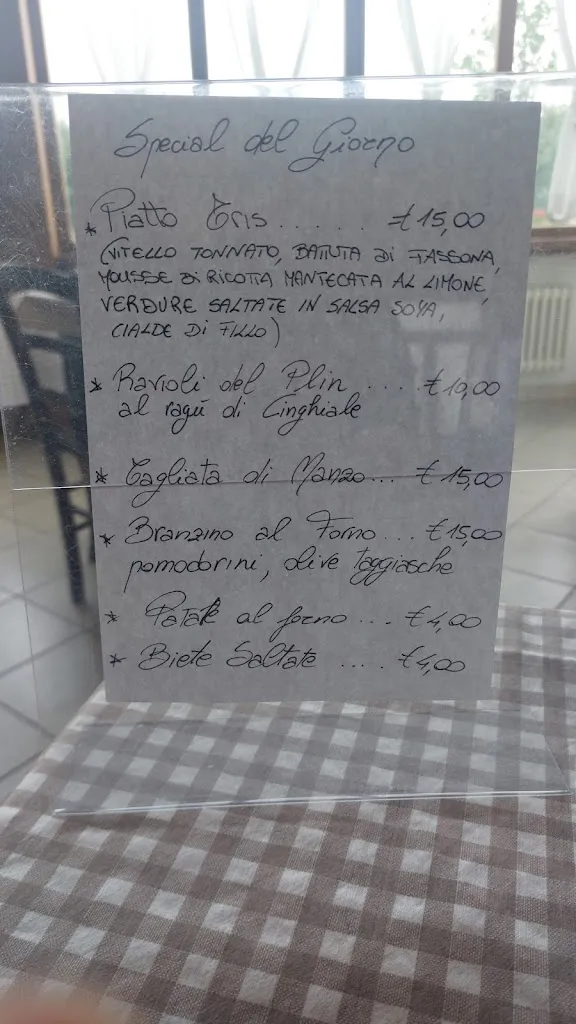 Special del Giorno
* Piatto Tris ...... € 15,00
(VITELLO TONNATO, BATTUTA di FASSONA,
MOUSSE DI RICOTTA MANTECATA AL LIMONE,
VERDURE SALTATE IN SALSA SOYA,
CIALDE DI FILLO)
* Ravioli del Plin .... € 10,00
al ragù di Cinghiale
* Tagliata di Manzo... € 15,00
* Branzino al Forno... € 15,00
pomodorini, olive taggiasche
* Patate al forno ... € 4,00
* Biete Saltate .... € 4,00